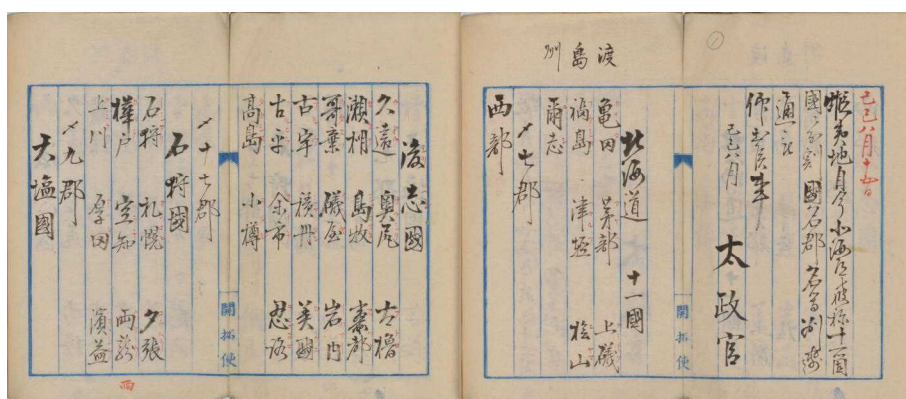 ①
己巳八月十五日
蝦夷地自今北海道被称十一箇
國ニ分割國名郡名等別紙
通ニ
仰出候事
己巳八月 太政官
渡島洲
北海道 十一國
亀田 茅部 上磯
福島 津軽 桧山
爾志
〆七郡
西部
開拓使
後志國
久遠 奥尻 太櫓
瀬棚 島牧 壽都
歌棄 磯屋 岩内
古宇 積丹 美國
古平 余市 忍路
高島 小樽
〆十七郡
開拓使
石狩國
石狩 札幌 夕張
樺戸 空知 雨龍
上川 厚田 濱益
〆九郡
天塩國